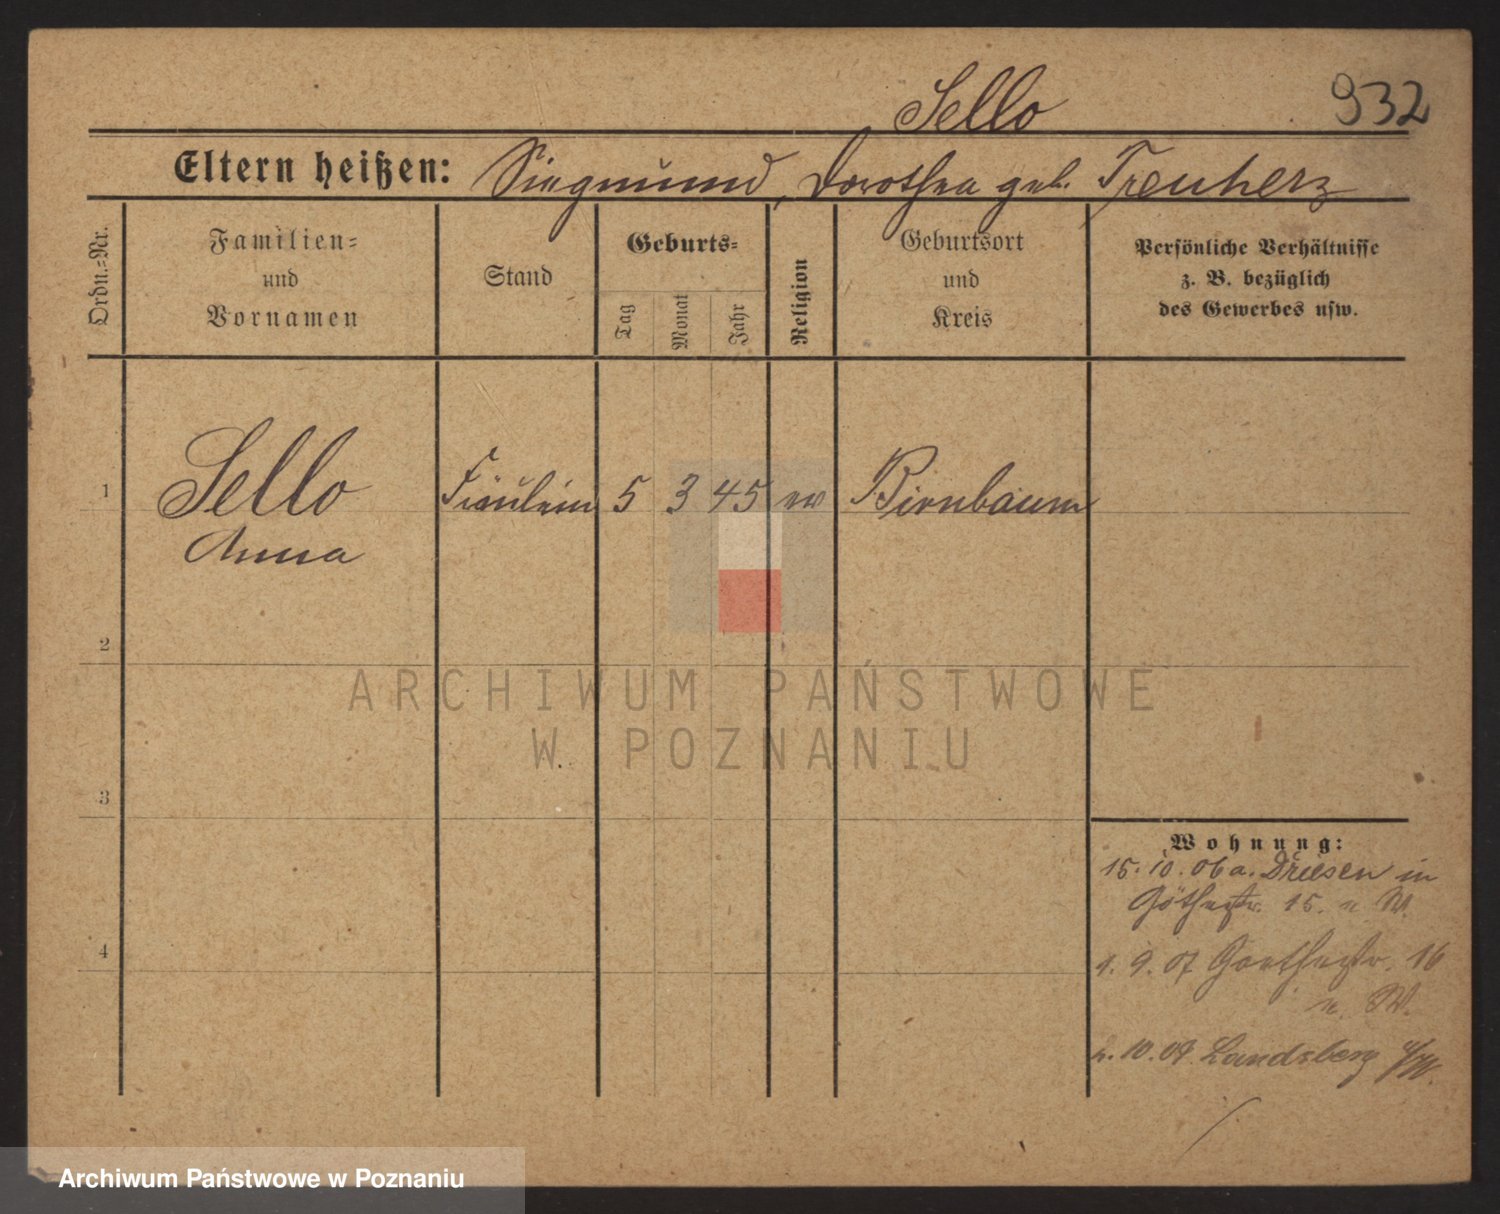 Sello
932
Eltern heißen: Siegmund, Dorothea geb. Treuherz
Ordn.-Nr.
Familien-
und
Vornamen
Stand
Geburts-
Tag
Monat
Jahr
Religion
Geburtsort
und
Kreis
Persönliche Verhältnisse
z. B. bezüglich
des Gewerbes usw.
1
Sello Fräulein 5 3 45 ev Birnbaum
Anna
2
ARCHIWUM PAŃSTWOWE
W POZNANIU
3
Wohnung:
15.10.06 a. Driesen in
Göthestr. 15. W.
4
1. 9. 07 Goethestr. 16
W.
10. Landsberg a/W.
Archiwum Państwowe w Poznaniu